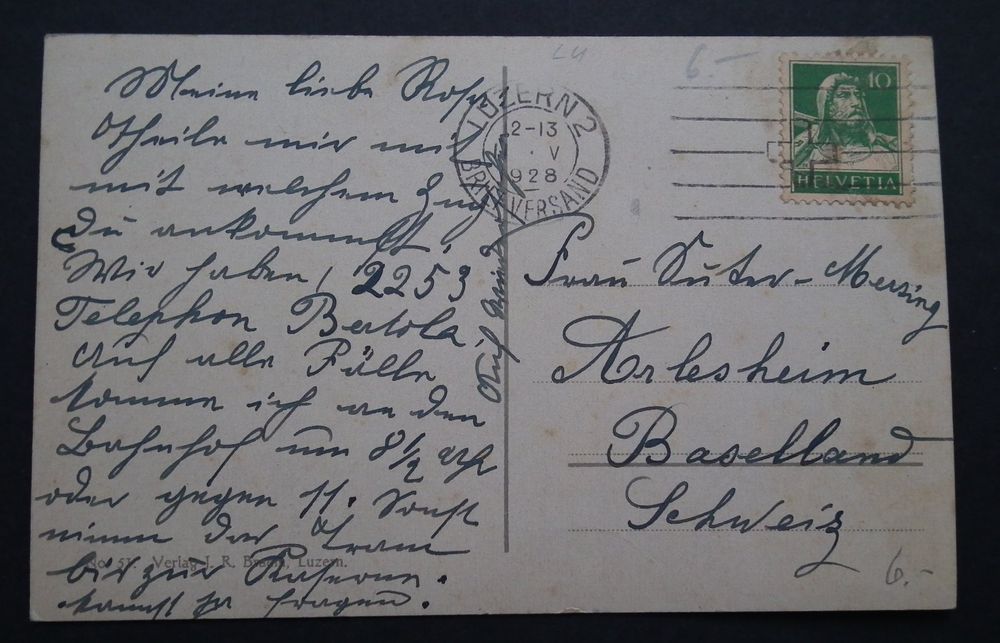 Meine liebe Rosa
theile mir mit
mit welchem Zug
du ankommst,
Wir haben, 2253
Telephon Bertola,
Auf alle Fälle
komme ich an den
Bahnhof um 8 1/2 Uhr
oder gegen 11. Sonst
nimm das Tram
bis zur Kaserne.
kannst ja fragen.
Auf
LU
6.-
LUZERN 2
12-13
V
1928
BRIEFVERSAND
10
HELVETIA
Frau Suter-Merzing
Arlesheim
Baselland
Schweiz
6.-
Verlag J. R. Braun, Luzern.